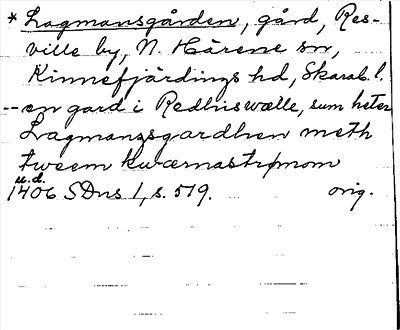 * Lagmansgården, gård, Res-
ville by, N. Härene sn,
Kinnefjärdings hd, Skarab. l.
-- en gard i Redhiswælle, sum heter
Lagmanzgardhen meth
tweem kwærnastrømom
u.d.
1406 SDns 1, s. 519. orig.